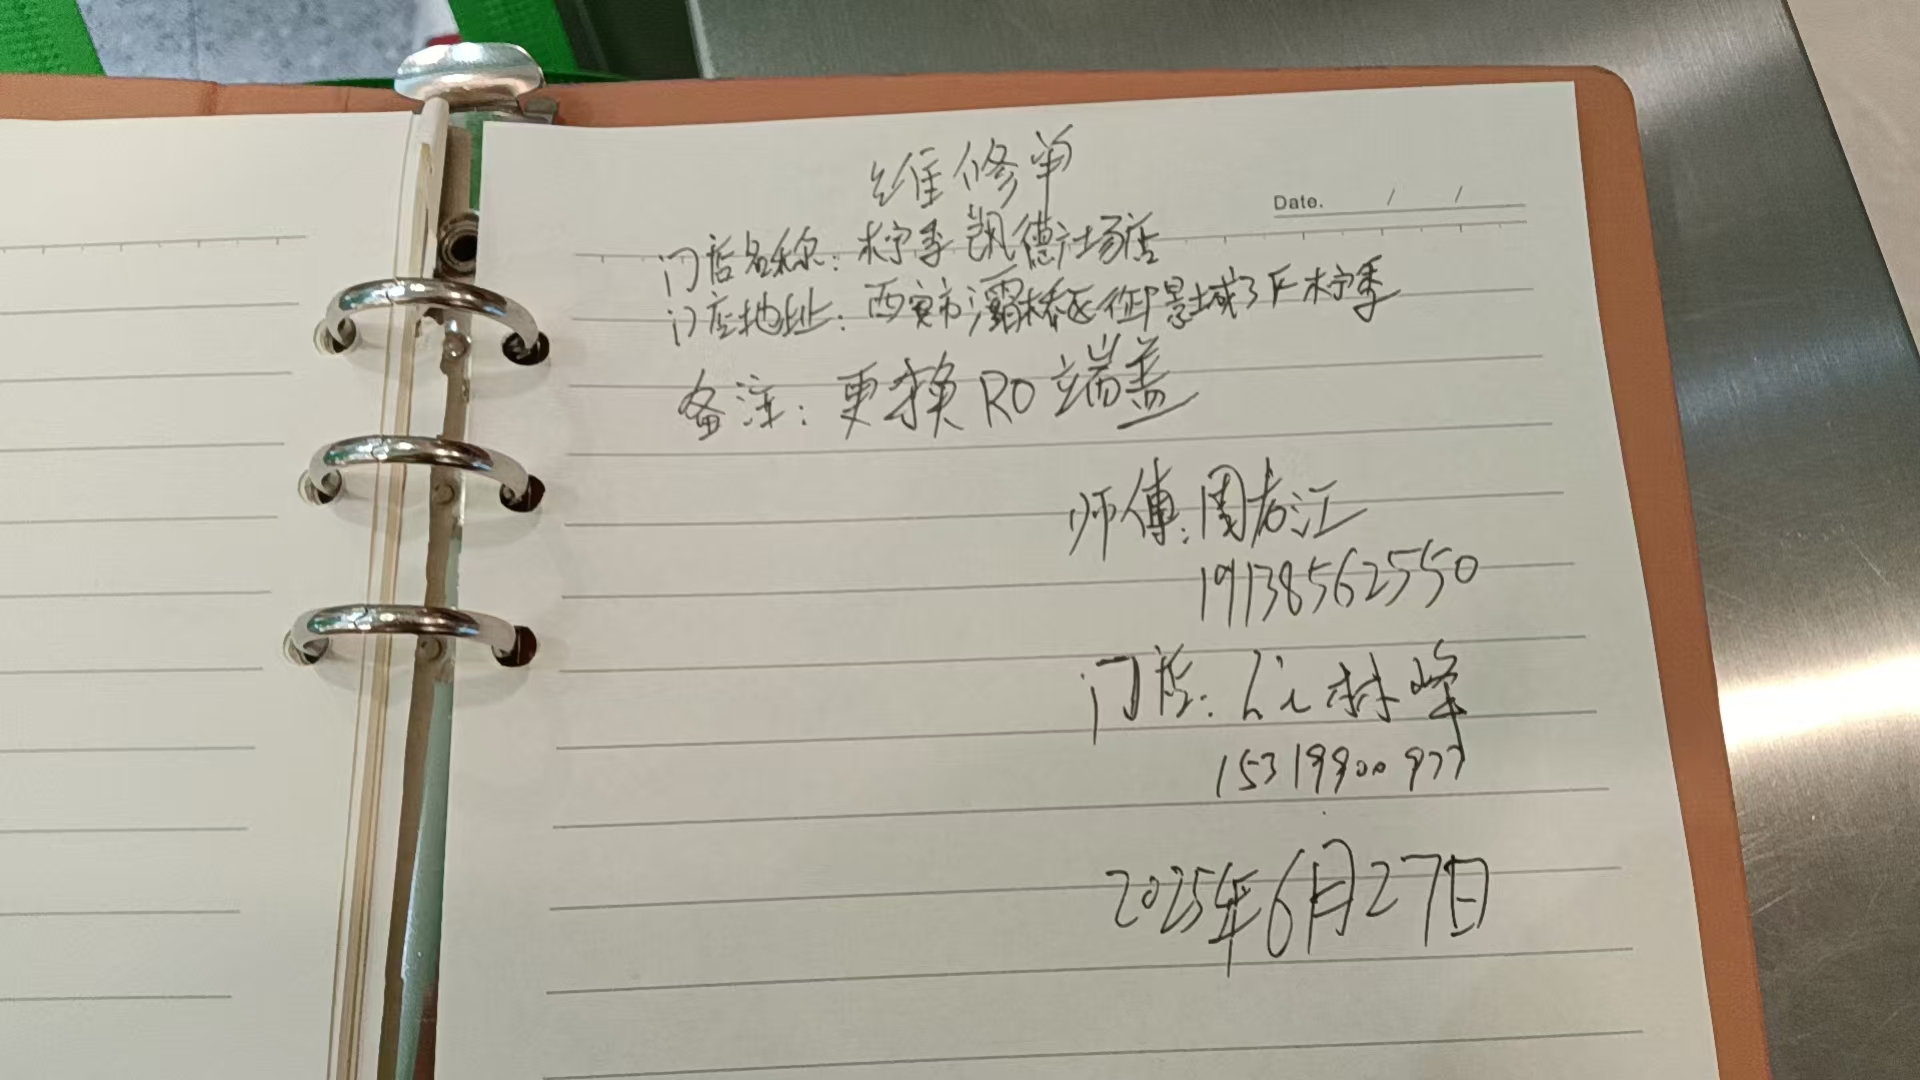 维修单
Date. / /
门店名称：柠季凯德广场店
门店地址：西安市灞桥区御景城3F柠季
备注：更换RO端盖
师傅：周龙江
19138562550
门店：林峰
15319900977
2025年6月27日